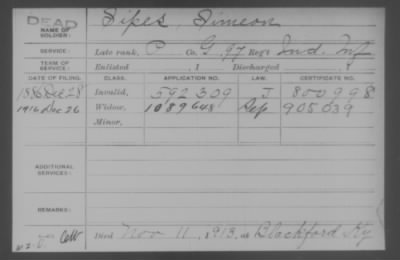 DEAD
NAME OF SOLDIER: Sipes, Simeon
SERVICE: Late rank, P Co. G, 97 Reg't Ind. Inf
TERM OF SERVICE: Enlisted , 1 Discharged , 1
DATE OF FILING. CLASS. APPLICATION NO. LAW. CERTIFICATE NO.
1886 Dec 28 Invalid, 592309 J 800998
1916 Dec 26 Widow, 1089648 Sep 905039
Minor,
ADDITIONAL SERVICES:
REMARKS:
Died Nov 11, 1913, at Blackford Ky